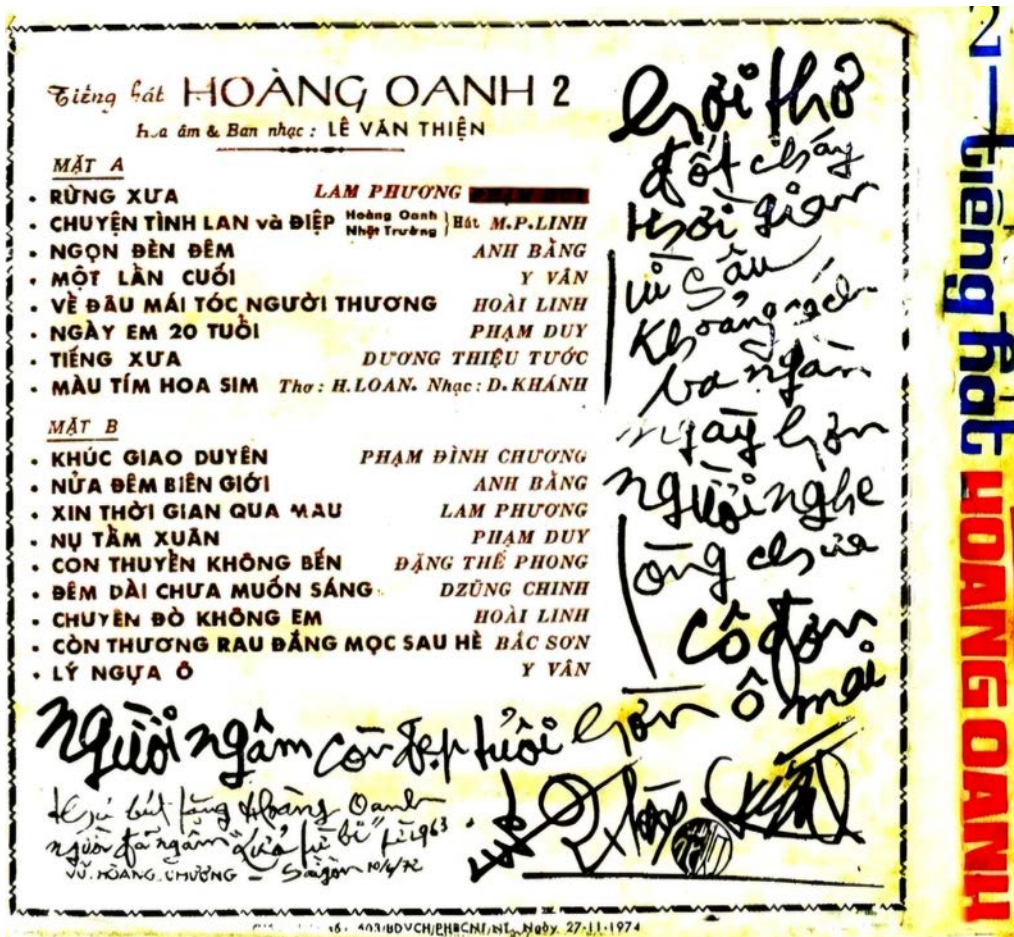 Tiếng hát HOÀNG OANH 2
hòa âm & Ban nhạc : LÊ VĂN THIỆN
MẶT A
• RỪNG XƯA LAM PHƯƠNG
• CHUYỆN TÌNH LAN và ĐIỆP Hoàng Oanh Nhật Trường } Hát M.P.LINH
• NGỌN ĐÈN ĐÊM ANH BẰNG
• MỘT LẦN CUỐI Y VÂN
• VỀ ĐÂU MÁI TÓC NGƯỜI THƯƠNG HOÀI LINH
• NGÀY EM 20 TUỔI PHẠM DUY
• TIẾNG XƯA DƯƠNG THIỆU TƯỚC
• MÀU TÍM HOA SIM Thơ : H.LOAN. Nhạc : D.KHÁNH
MẶT B
• KHÚC GIAO DUYÊN PHẠM ĐÌNH CHƯƠNG
• NỬA ĐÊM BIÊN GIỚI ANH BẰNG
• XIN THỜI GIAN QUA MAU LAM PHƯƠNG
• NỤ TẦM XUÂN PHẠM DUY
• CON THUYỀN KHÔNG BẾN ĐẶNG THẾ PHONG
• ĐÊM DÀI CHƯA MUỐN SÁNG DZŨNG CHINH
• CHUYẾN ĐÒ KHÔNG EM HOÀI LINH
• CÒN THƯƠNG RAU ĐẮNG MỌC SAU HÈ BẮC SƠN
• LÝ NGỰA Ô Y VÂN
hơi thở
đốt cháy
thời gian
sầu
khoảng cách
ba ngàn
ngày hơn
người nghe
ông chưa
cô đơn
người ngâm còn đẹp tuổi hơn ô mai
thủ bút tặng Hoàng Oanh
người đã ngâm "Lửa từ bi" từ 1963
VŨ HOÀNG CHƯƠNG – Sàigòn 10/4/72
403/BDVCH/PHBCNT/NT. Ngày 27-11-1974
2 – tiếng hát HOANG OANH